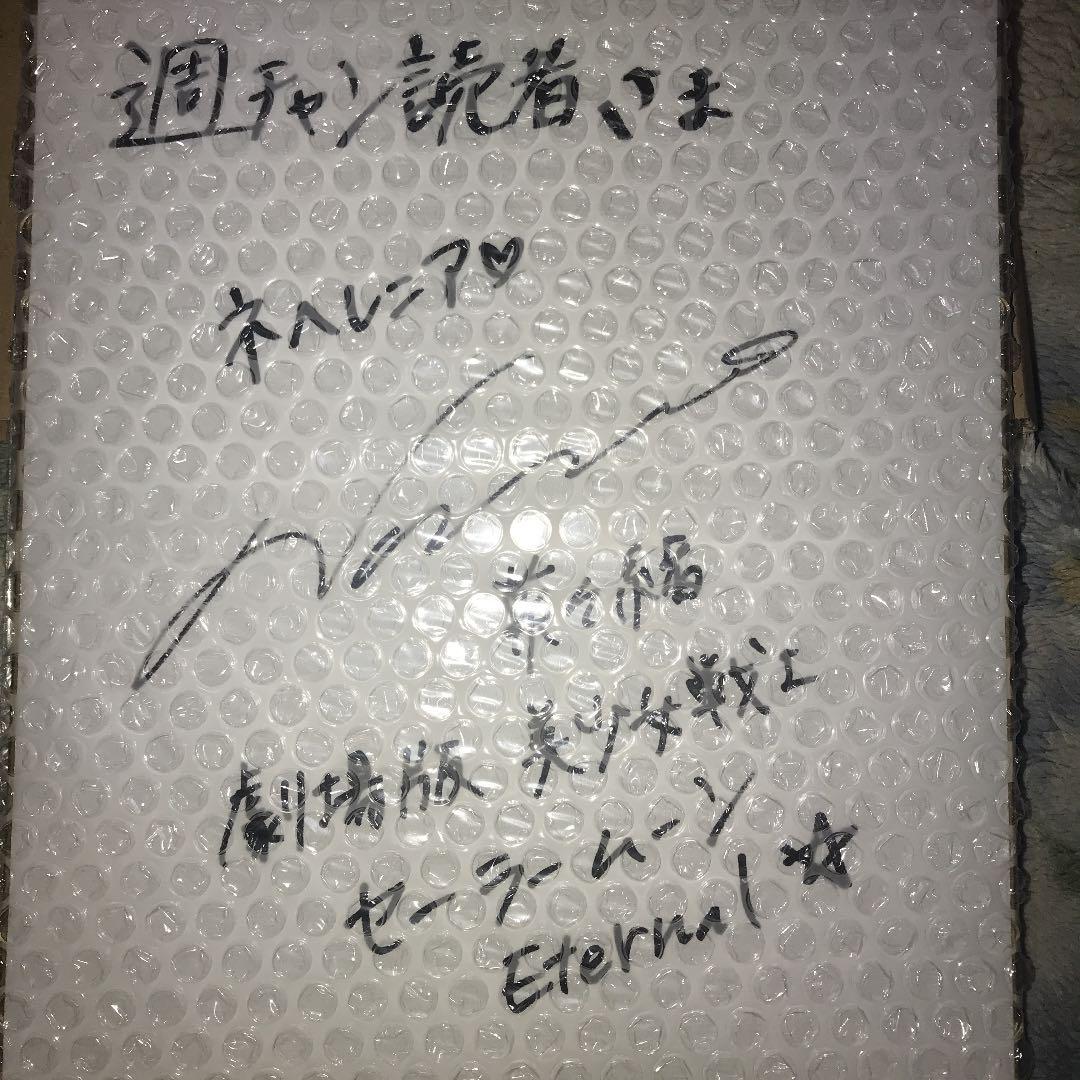 週チャン読者さま
ネヘレニア♡
菜々緒
劇場版 美少女戦士
セーラームーン
Eternal ☆